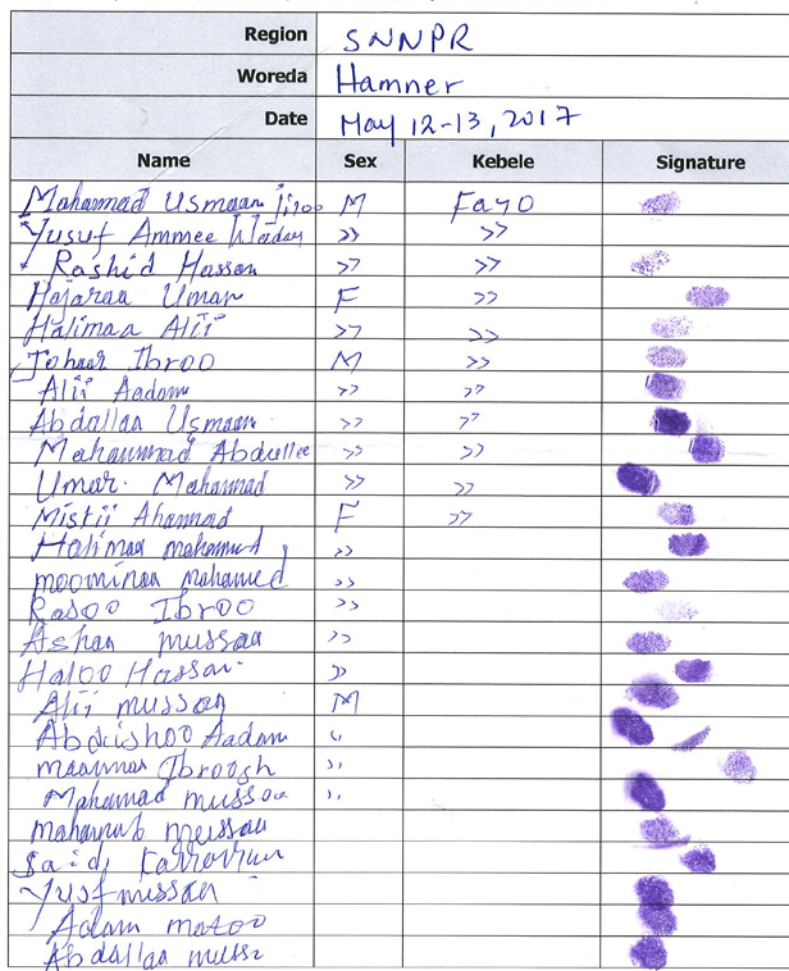 Region SNNPR
Woreda Hamner
Date May 12-13, 2017
Name Sex Kebele Signature
Mohammed Usmaan Jiroo M Fayo
Yusuf Ammee Waday >> >>
Rashid Hassan >> >>
Hajaraa Umar F >>
Halimaa Alii >> >>
Johaar Ibroo M >>
Alii Aadam >> >>
Abdallaa Usmaan >> >>
Mohammad Abdullee >> >>
Umar Mohammad >> >>
Mistii Ahammad F >>
Halimaa mohamed >>
moominaa mahamed >>
Rasoo Ibroo >>
Ashaa mussaa >>
Haloo Hassan >>
Alii mussaa M
Abdishoo Aadam "
Ibroogh "
Mohamad mussaa "
mussaa
Said
Yusf mussaa
Adam
Abdallaa